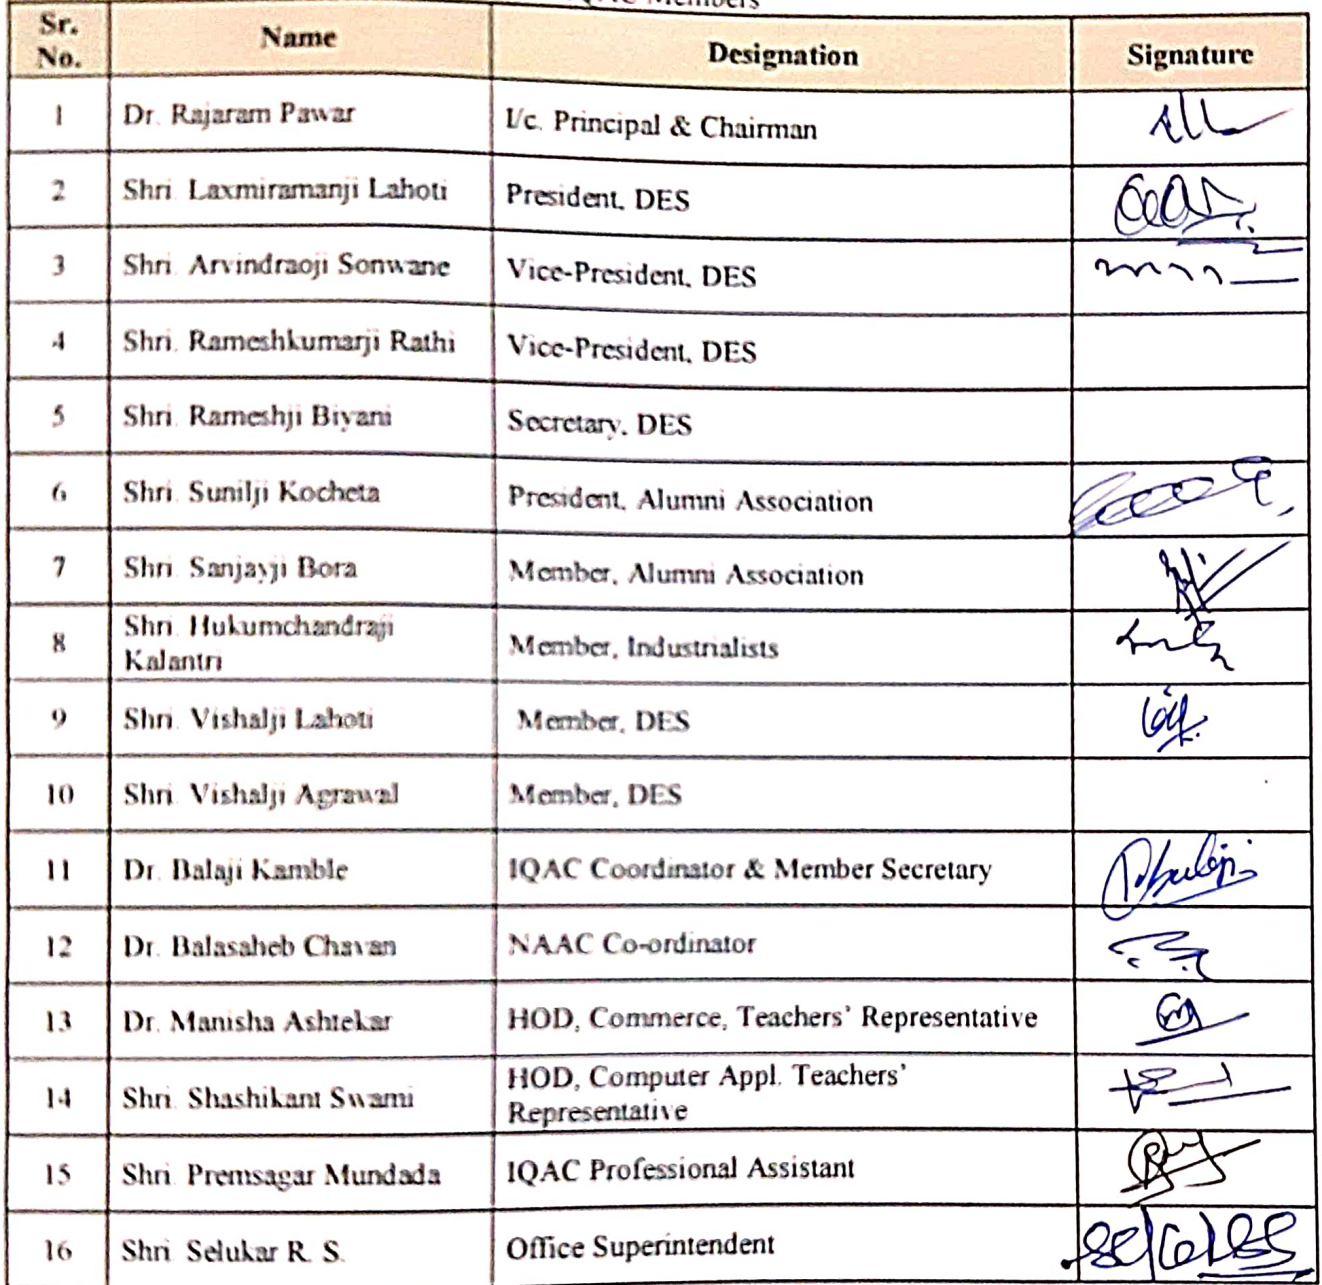 Members
Sr. No. Name Designation Signature
1 Dr. Rajaram Pawar I/c. Principal & Chairman
2 Shri. Laxmiramanji Lahoti President, DES
3 Shri. Arvindraoji Sonwane Vice-President, DES
4 Shri. Rameshkumarji Rathi Vice-President, DES
5 Shri. Rameshji Biyani Secretary, DES
6 Shri. Sunilji Kocheta President, Alumni Association
7 Shri. Sanjayji Bora Member, Alumni Association
8 Shri. Hukumchandraji Kalantri Member, Industrialists
9 Shri. Vishalji Lahoti Member, DES
10 Shri. Vishalji Agrawal Member, DES
11 Dr. Balaji Kamble IQAC Coordinator & Member Secretary
12 Dr. Balasaheb Chavan NAAC Co-ordinator
13 Dr. Manisha Ashtekar HOD, Commerce, Teachers' Representative
14 Shri. Shashikant Swami HOD, Computer Appl. Teachers' Representative
15 Shri. Premsagar Mundada IQAC Professional Assistant
16 Shri. Selukar R. S. Office Superintendent